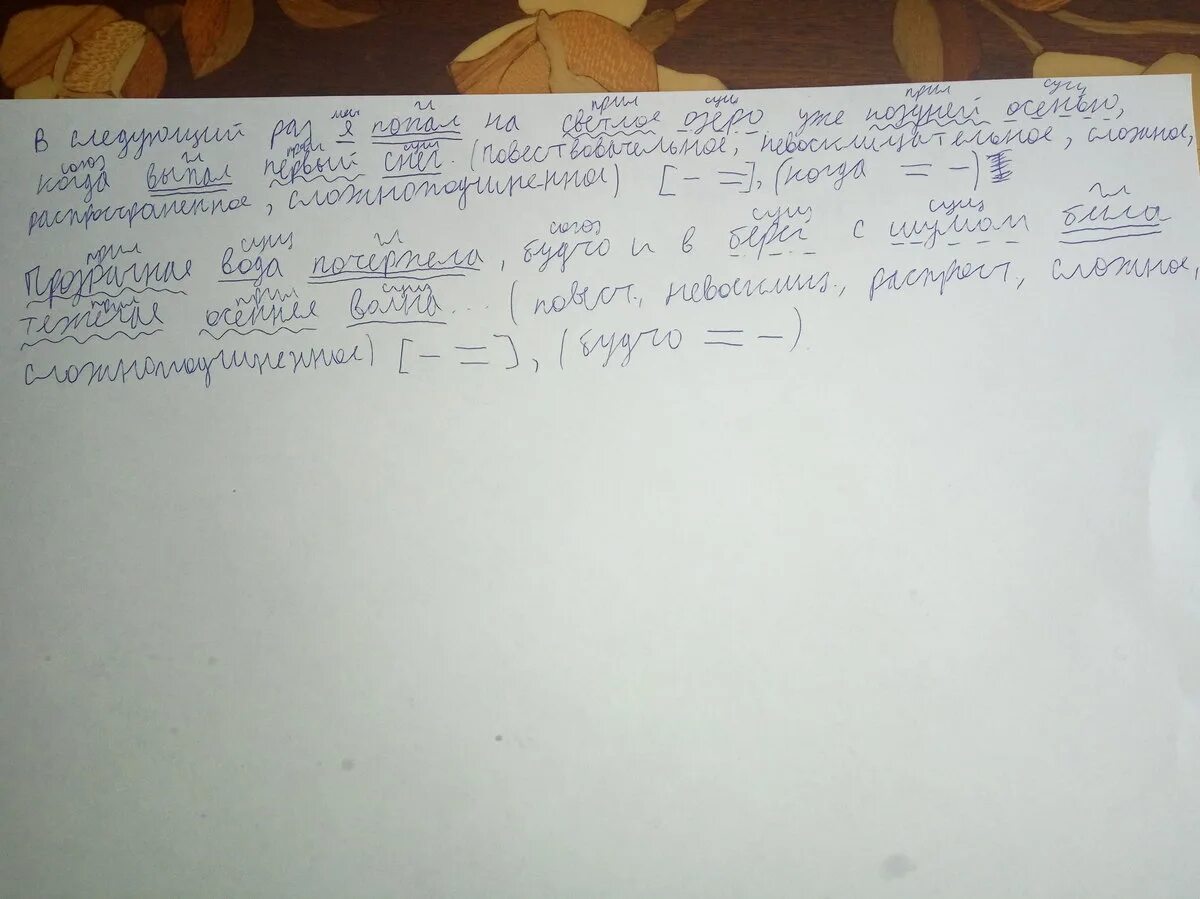 мест. гл прил сущ прил сущ
В следующий раз я попал на светлое озеро уже поздней осенью,
союз гл прил сущ
когда выпал первый снег. (повествовательное, невосклицательное, сложное,
распространенное, сложноподчиненное) [- =], (когда = -)
прил сущ гл союз сущ сущ гл
Прозрачная вода почернела, будто и в берег с шумом била
прил прил сущ
тяжёлая осенняя волна... (повест., невосклиц., распрост., сложное,
сложноподчиненное) [- =], (будто = -)